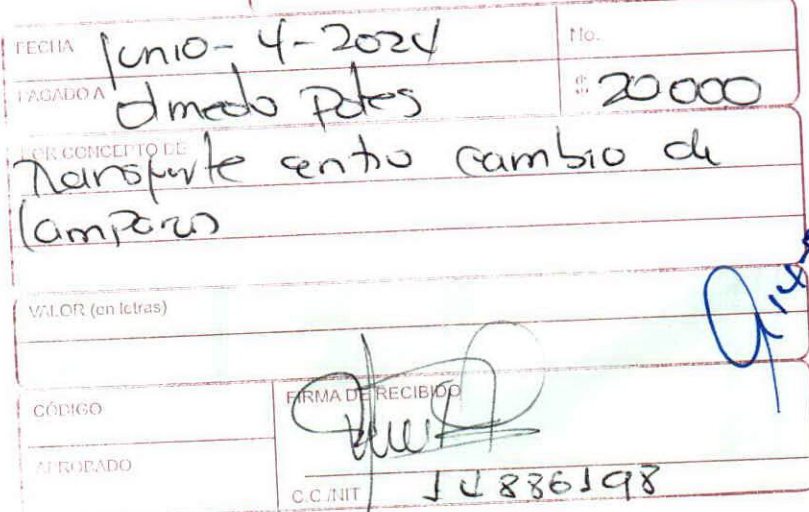 FECHA Junio-4-2024 No.
PAGADO A Olmedo Potes $ 20000
POR CONCEPTO DE
Transporte centro cambio de
lamparas
VALOR (en letras)
CÓDIGO
FIRMA DE RECIBIDO
APROBADO
C.C./NIT